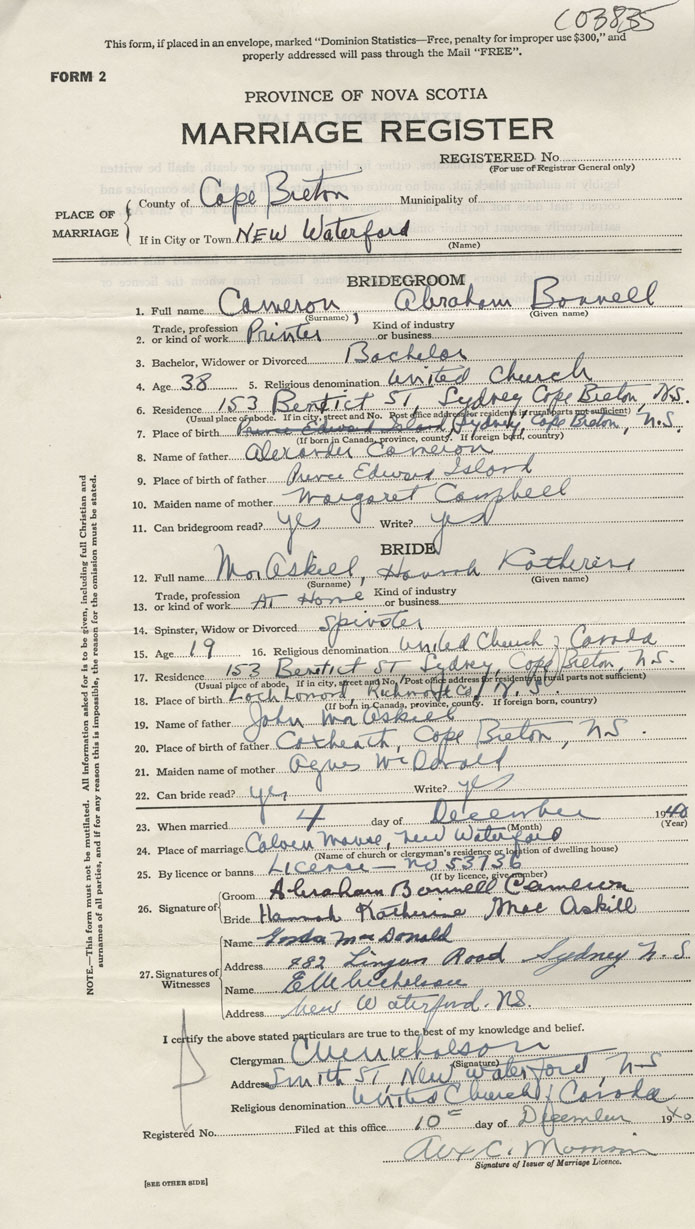 C03835
This form, if placed in an envelope, marked "Dominion Statistics—Free, penalty for improper use $300," and
properly addressed will pass through the Mail "FREE".
FORM 2
PROVINCE OF NOVA SCOTIA
MARRIAGE REGISTER
REGISTERED No.
(For use of Registrar General only)
PLACE OF MARRIAGE
County of Cape Breton Municipality of
If in City or Town NEW Waterford
(Name)
BRIDEGROOM
1. Full name Cameron, Abraham Bonnell
(Surname) (Given name)
2. Trade, profession or kind of work Printer Kind of industry or business
3. Bachelor, Widower or Divorced Bachelor
4. Age 38 5. Religious denomination United Church
6. Residence 153 Bentict St, Sydney Cape Breton, N.S.
(Usual place of abode. If in city, street and No. Post office address for residents in rural parts not sufficient)
7. Place of birth Prince Edward Island Sydney, Cape Breton, N.S.
(If born in Canada, province, county. If foreign born, country)
8. Name of father Alexander Cameron
9. Place of birth of father Prince Edward Island
10. Maiden name of mother Margaret Campbell
11. Can bridegroom read? yes Write? yes
BRIDE
12. Full name MacAskill, Hannah Katherine
(Surname) (Given name)
13. Trade, profession or kind of work At Home Kind of industry or business
14. Spinster, Widow or Divorced Spinster
15. Age 19 16. Religious denomination United Church of Canada
17. Residence 153 Bentict ST Sydney, Cape Breton, N.S.
(Usual place of abode. If in city, street and No. Post office address for residents in rural parts not sufficient)
18. Place of birth Loch Lomond, Richmond Co., N.S.
(If born in Canada, province, county. If foreign born, country)
19. Name of father John MacAskill
20. Place of birth of father Coxheath, Cape Breton, NS.
21. Maiden name of mother Agnes McDonald
22. Can bride read? yes Write? yes
23. When married 4 day of December 1940
(Month) (Year)
24. Place of marriage Calvin Manse, New Waterford
(Name of church or clergyman's residence or location of dwelling house)
25. By licence or banns License — no 53736
(If by licence, give number)
26. Signature of Groom Abraham Bonnell Cameron
Bride Hannah Katherine MacAskill
27. Signatures of Witnesses
Name MacDonald
Address 482 Lingan Road Sydney N.S
Name
Address New Waterford. NS.
I certify the above stated particulars are true to the best of my knowledge and belief.
Clergyman Nicholson
(Signature)
Address Smith ST New Waterford, N-S
Religious denomination United Church of Canada
Registered No. Filed at this office 10 day of December 1940
Signature of Issuer of Marriage Licence.
[SEE OTHER SIDE]
NOTE.—This form must not be mutilated. All information asked for is to be given, including full Christian and
surnames of all parties, and if for any reason this is impossible, the reason for the omission must be stated.